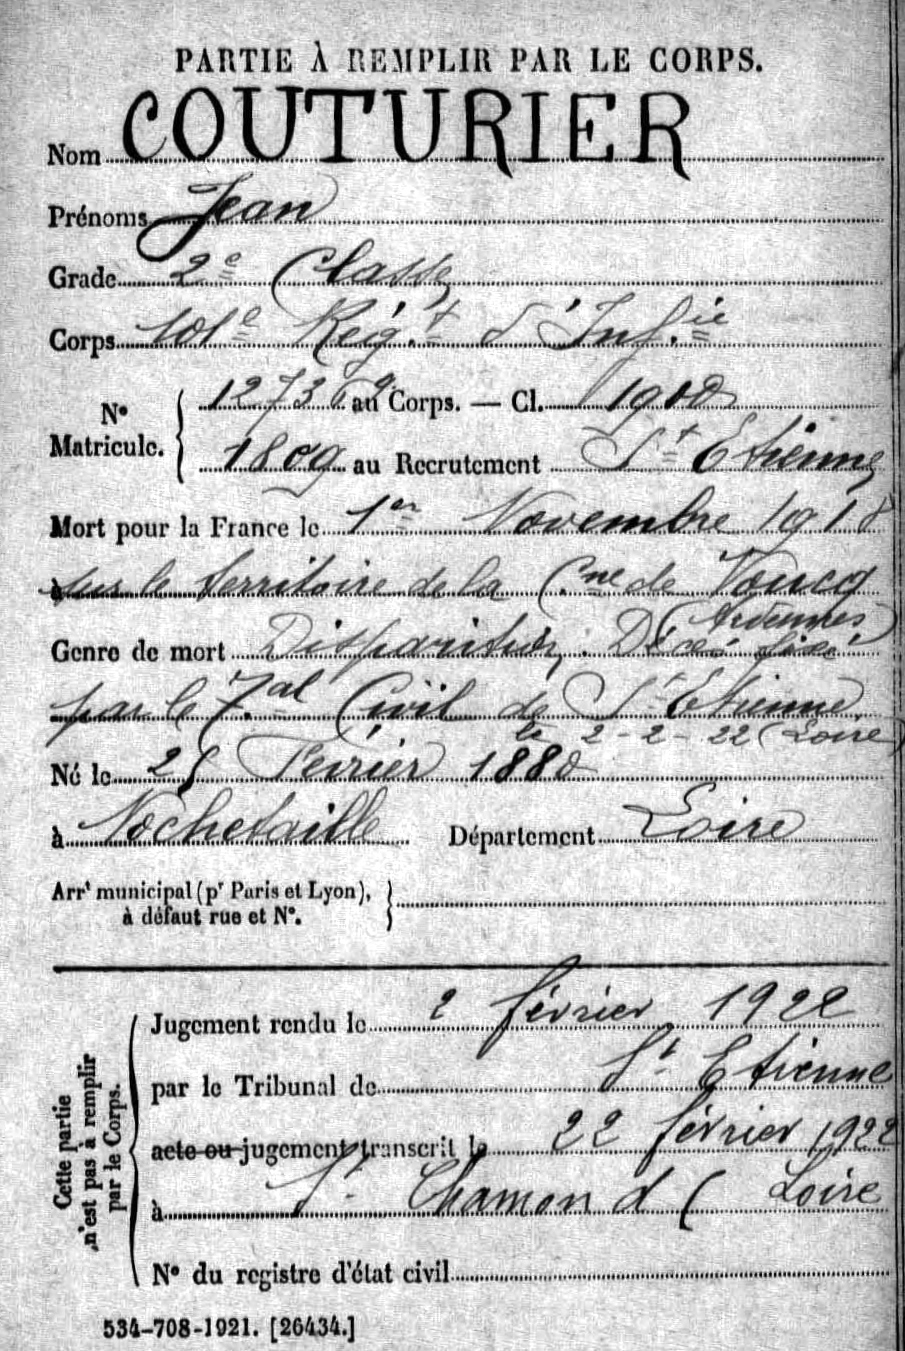 PARTIE À REMPLIR PAR LE CORPS.
Nom COUTURIER
Prénoms Jean
Grade 2e Classe
Corps 101e Rég.t d'Inf.ie
No Matricule. { 12736 au Corps. — Cl. 1900
1809 au Recrutement St Etienne
Mort pour la France le 1er Novembre 1918
à sur le territoire de la Cne de Voncq
(Ardennes)
Genre de mort Disparition. Décès fixé
par le Tal Civil de St Etienne
le 2-2-22 (Loire)
Né le 25 Février 1880
à Rochetaille Département Loire
Arrt municipal (pr Paris et Lyon),
à défaut rue et No. }
Cette partie n'est pas à remplir par le Corps.
Jugement rendu le 2 février 1922
par le Tribunal de St Etienne
acte ou jugement transcrit le 22 février 1922
à St Chamond (Loire
No du registre d'état civil
534-708-1921. [26434.]